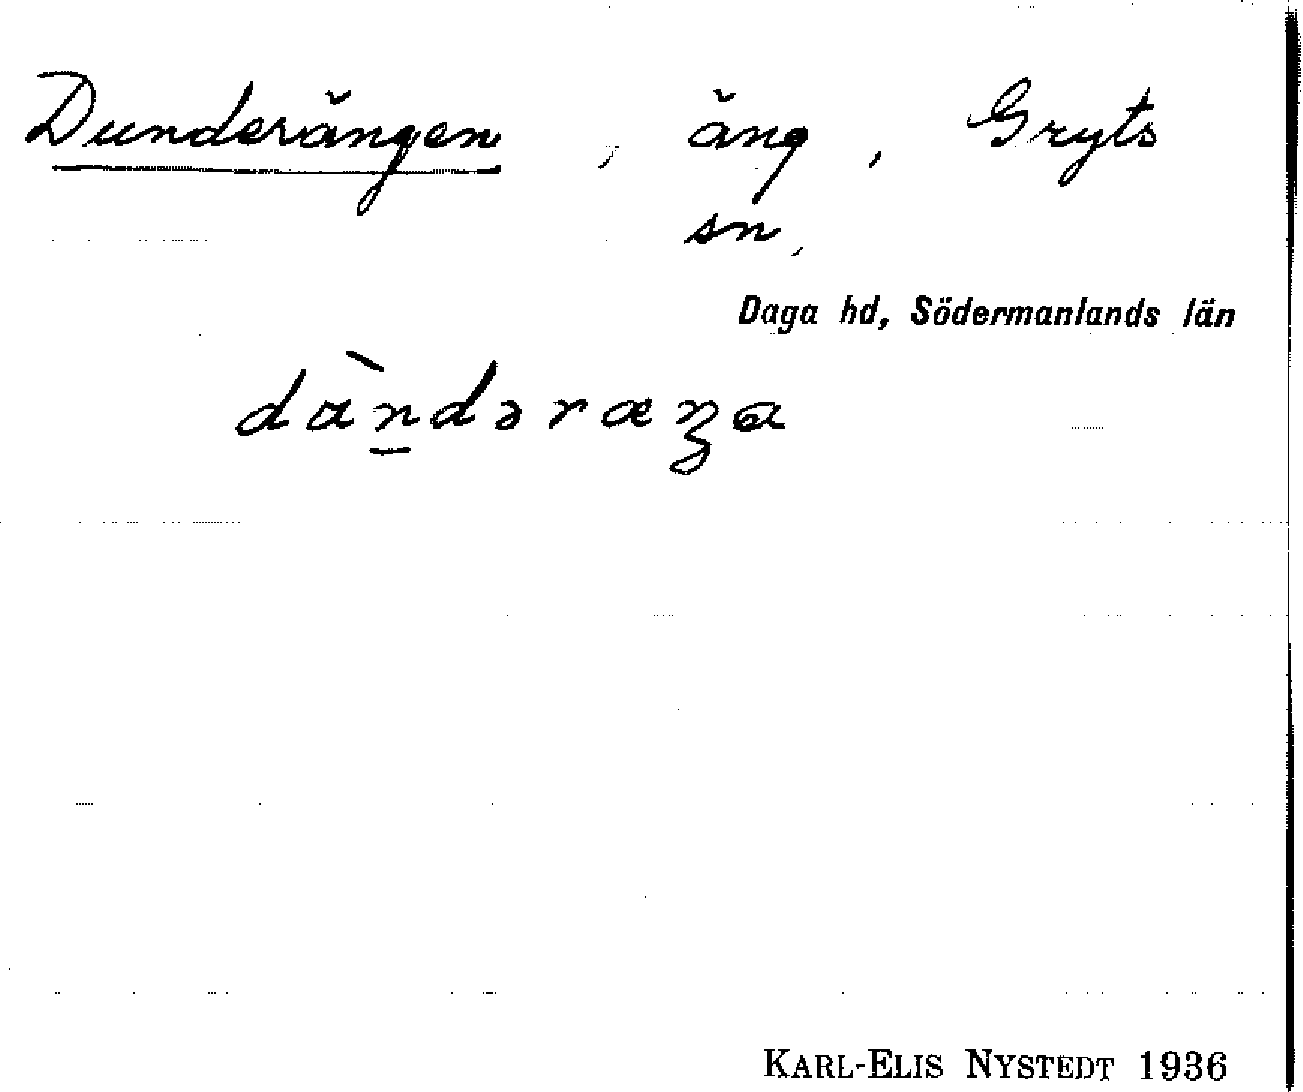 Dunderängen, äng, Gryts
sn,
Daga hd, Södermanlands län
dàn̠dəræŋa
KARL-ELIS NYSTEDT 1936